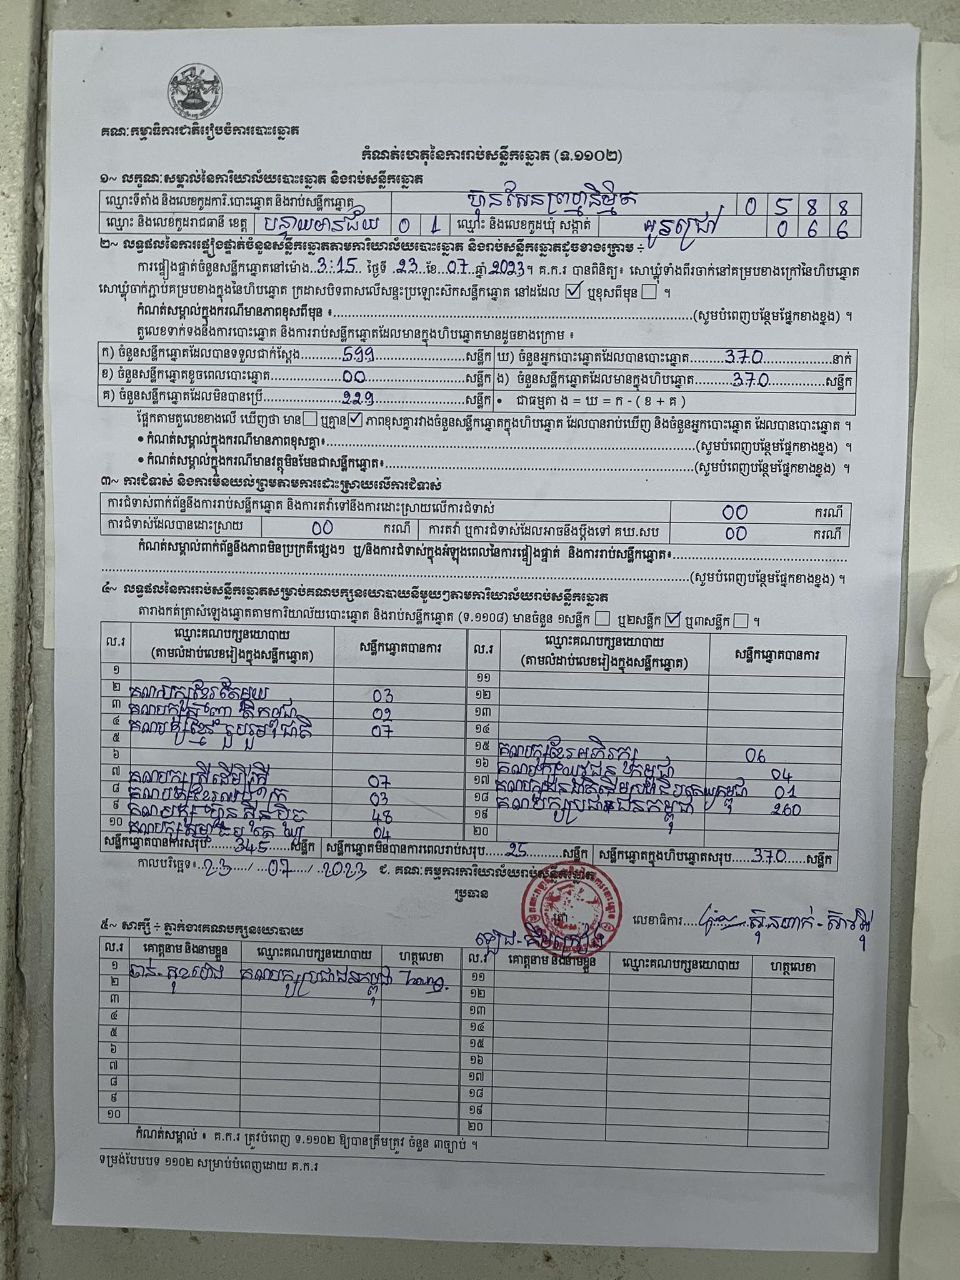 គណៈកម្មាធិការជាតិរៀបចំការបោះឆ្នោត
កំណត់ហេតុនៃការរាប់សន្លឹកឆ្នោត (ទ.១១០២)
១~ លក្ខណៈសម្គាល់នៃការិយាល័យបោះឆ្នោត និងរាប់សន្លឹកឆ្នោត
ឈ្មោះទីតាំង និងលេខកូដការិ.បោះឆ្នោត និងរាប់សន្លឹកឆ្នោត ហ៊ុនសែនព្រហ្មនិម្មិត 0 5 8 8
ឈ្មោះ និងលេខកូដរាជធានី ខេត្ត បន្ទាយមានជ័យ 0 1 ឈ្មោះ និងលេខកូដឃុំ សង្កាត់ អូរជ្រៅ 0 6 6
២~ លទ្ធផលនៃការផ្ទៀងផ្ទាត់ចំនួនសន្លឹកឆ្នោតតាមការិយាល័យបោះឆ្នោត និងរាប់សន្លឹកឆ្នោតដូចខាងក្រោម ÷
ការផ្ទៀងផ្ទាត់ចំនួនសន្លឹកឆ្នោតនៅម៉ោង..3:15.. ថ្ងៃទី ..23..ខែ..07..ឆ្នាំ 2023។ គ.ក.រ បានពិនិត្យ៖ សោឃ្លុំទាំងពីរចាក់នៅគម្របខាងក្រៅនៃហិបឆ្នោត
សោឃ្លុំចាក់ភ្ជាប់គម្របខាងក្នុងនៃហិបឆ្នោត ក្រដាសបិទពាសលើសន្ទះប្រឡោះស៊កសន្លឹកឆ្នោត នៅដដែល ☑ ឬខុសពីមុន ☐ ។
កំណត់សម្គាល់ក្នុងករណីមានភាពខុសពីមុន ៖......(សូមបំពេញបន្ថែមផ្នែកខាងខ្នង) ។
តួលេខទាក់ទងនឹងការបោះឆ្នោត និងការរាប់សន្លឹកឆ្នោតដែលមានក្នុងហិបឆ្នោតមានដូចខាងក្រោម ៖
ក) ចំនួនសន្លឹកឆ្នោតដែលបានទទួលជាក់ស្តែង......599......សន្លឹក ឃ) ចំនួនអ្នកបោះឆ្នោតដែលបានបោះឆ្នោត......370......នាក់
ខ) ចំនួនសន្លឹកឆ្នោតខូចពេលបោះឆ្នោត......00......សន្លឹក ង) ចំនួនសន្លឹកឆ្នោតដែលមានក្នុងហិបឆ្នោត......370......សន្លឹក
គ) ចំនួនសន្លឹកឆ្នោតដែលមិនបានប្រើ......229......សន្លឹក • ជាធម្មតា ង = ឃ = ក - ( ខ + គ )
ផ្អែកតាមតួលេខខាងលើ ឃើញថា មាន☐ ឬគ្មាន☑ ភាពខុសគ្នារវាងចំនួនសន្លឹកឆ្នោតក្នុងហិបឆ្នោត ដែលបានរាប់ឃើញ និងចំនួនអ្នកបោះឆ្នោត ដែលបានបោះឆ្នោត ។
• កំណត់សម្គាល់ក្នុងករណីមានភាពខុសគ្នា៖......(សូមបំពេញបន្ថែមផ្នែកខាងខ្នង) ។
• កំណត់សម្គាល់ក្នុងករណីមានវត្ថុមិនមែនជាសន្លឹកឆ្នោត៖......(សូមបំពេញបន្ថែមផ្នែកខាងខ្នង) ។
៣~ ការជំទាស់ និងការមិនយល់ព្រមតាមការដោះស្រាយលើការជំទាស់
ការជំទាស់ពាក់ព័ន្ធនឹងការរាប់សន្លឹកឆ្នោត និងការតវ៉ាទៅនឹងការដោះស្រាយលើការជំទាស់ 00 ករណី
ការជំទាស់ដែលបានដោះស្រាយ 00 ករណី ការតវ៉ា ឬការជំទាស់ដែលអាចនឹងប្តឹងទៅ គឃ.សប 00 ករណី
កំណត់សម្គាល់ពាក់ព័ន្ធនឹងភាពមិនប្រក្រតីផ្សេងៗ ឬ/និងការជំទាស់ក្នុងអំឡុងពេលនៃការផ្ទៀងផ្ទាត់ និងការរាប់សន្លឹកឆ្នោត៖......
......(សូមបំពេញបន្ថែមផ្នែកខាងខ្នង) ។
៤~ លទ្ធផលនៃការរាប់សន្លឹកឆ្នោតសម្រាប់គណបក្សនយោបាយនីមួយៗតាមការិយាល័យរាប់សន្លឹកឆ្នោត
តារាងកត់ត្រាសំឡេងឆ្នោតតាមការិយាល័យបោះឆ្នោត និងរាប់សន្លឹកឆ្នោត (ទ.១១០៨) មានចំនួន ១សន្លឹក ☐ ឬ២សន្លឹក ☑ ឬ៣សន្លឹក ☐ ។
ល.រ ឈ្មោះគណបក្សនយោបាយ (តាមលំដាប់លេខរៀងក្នុងសន្លឹកឆ្នោត) សន្លឹកឆ្នោតបានការ ល.រ ឈ្មោះគណបក្សនយោបាយ (តាមលំដាប់លេខរៀងក្នុងសន្លឹកឆ្នោត) សន្លឹកឆ្នោតបានការ
១ ១១
២ គណបក្សខ្មែរតែមួយ 03 ១២
៣ 02 ១៣
៤ គណបក្សខ្មែររួបរួមជាតិ 07 ១៤
៥ ១៥ គណបក្សខ្មែរអភិរក្ស 06
៦ ១៦ គណបក្សយុវជនកម្ពុជា 04
៧ គណបក្សស្ត្រីដើម្បីស្ត្រី 07 ១៧ គណបក្សជនជាតិដើមប្រជាធិបតេយ្យកម្ពុជា 01
៨ 03 ១៨ គណបក្សប្រជាជនកម្ពុជា 260
៩ គណបក្សហ្វ៊ុនស៊ិនប៉ិច 48 ១៩
១០ 04 ២០
សន្លឹកឆ្នោតបានការសរុប......345......សន្លឹក សន្លឹកឆ្នោតមិនបានការពេលរាប់សរុប......25......សន្លឹក សន្លឹកឆ្នោតក្នុងហិបឆ្នោតសរុប......370......សន្លឹក
កាលបរិច្ឆេទ៖..23../..07../..2023 ជ. គណៈកម្មការការិយាល័យរាប់សន្លឹកឆ្នោត
ប្រធាន
លេខាធិការ
៥~ សាក្សី ÷ ភ្នាក់ងារគណបក្សនយោបាយ
ល.រ គោត្តនាម និងនាមខ្លួន ឈ្មោះគណបក្សនយោបាយ ហត្ថលេខា ល.រ គោត្តនាម និងនាមខ្លួន ឈ្មោះគណបក្សនយោបាយ ហត្ថលេខា
១ គណបក្សប្រជាជនកម្ពុជា ១១
២ ១២
៣ ១៣
៤ ១៤
៥ ១៥
៦ ១៦
៧ ១៧
៨ ១៨
៩ ១៩
១០ ២០
កំណត់សម្គាល់ ៖ គ.ក.រ ត្រូវបំពេញ ទ.១១០២ ឱ្យបានត្រឹមត្រូវ ចំនួន ៣ច្បាប់ ។
ទម្រង់បែបបទ ១១០២ សម្រាប់បំពេញដោយ គ.ក.រ